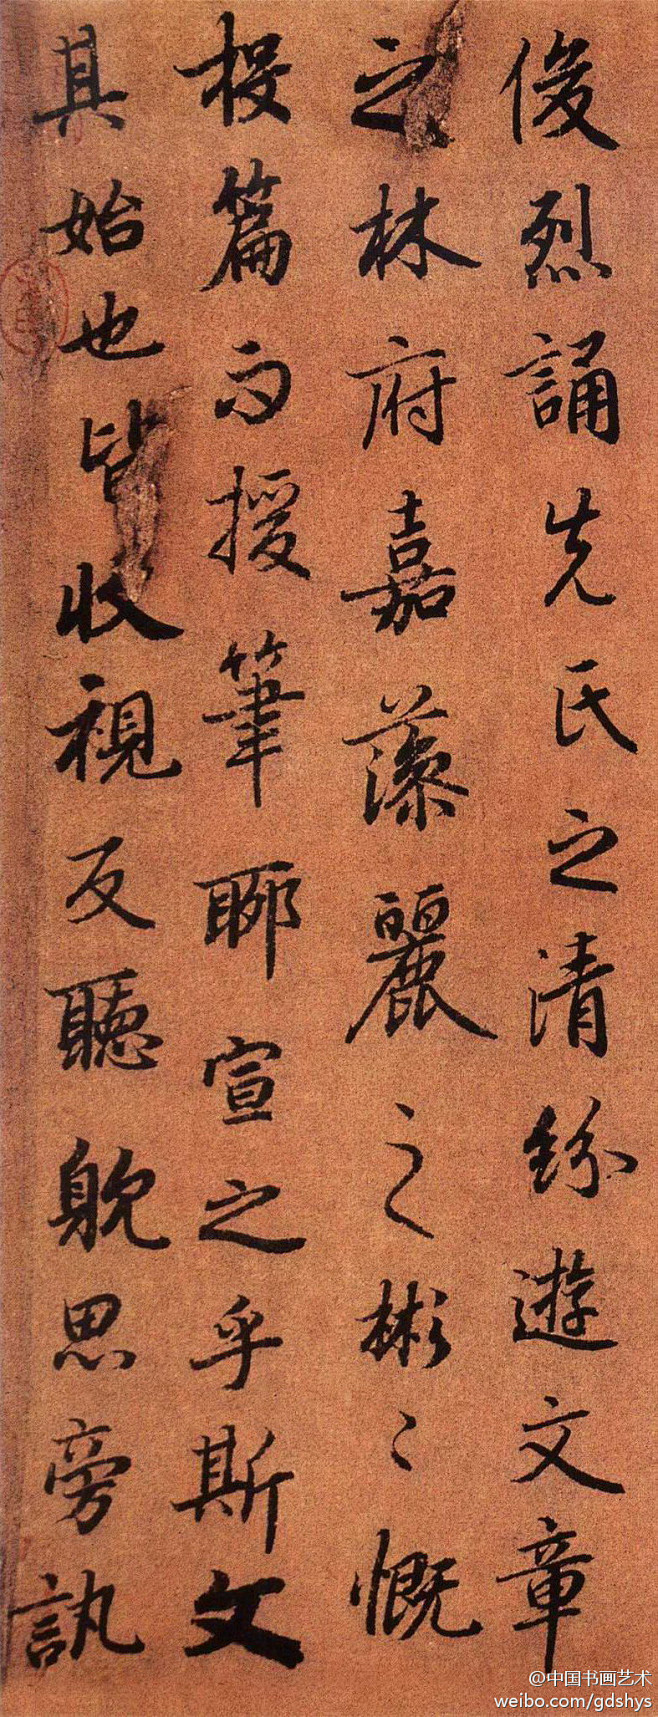 俊烈誦先氏之清紛遊文章
之林府嘉藻麗之彬〻慨
投篇而援筆聊宣之乎斯文
其始也皆收視反聽躭思旁訊
@中国书画艺术
weibo.com/gdshys